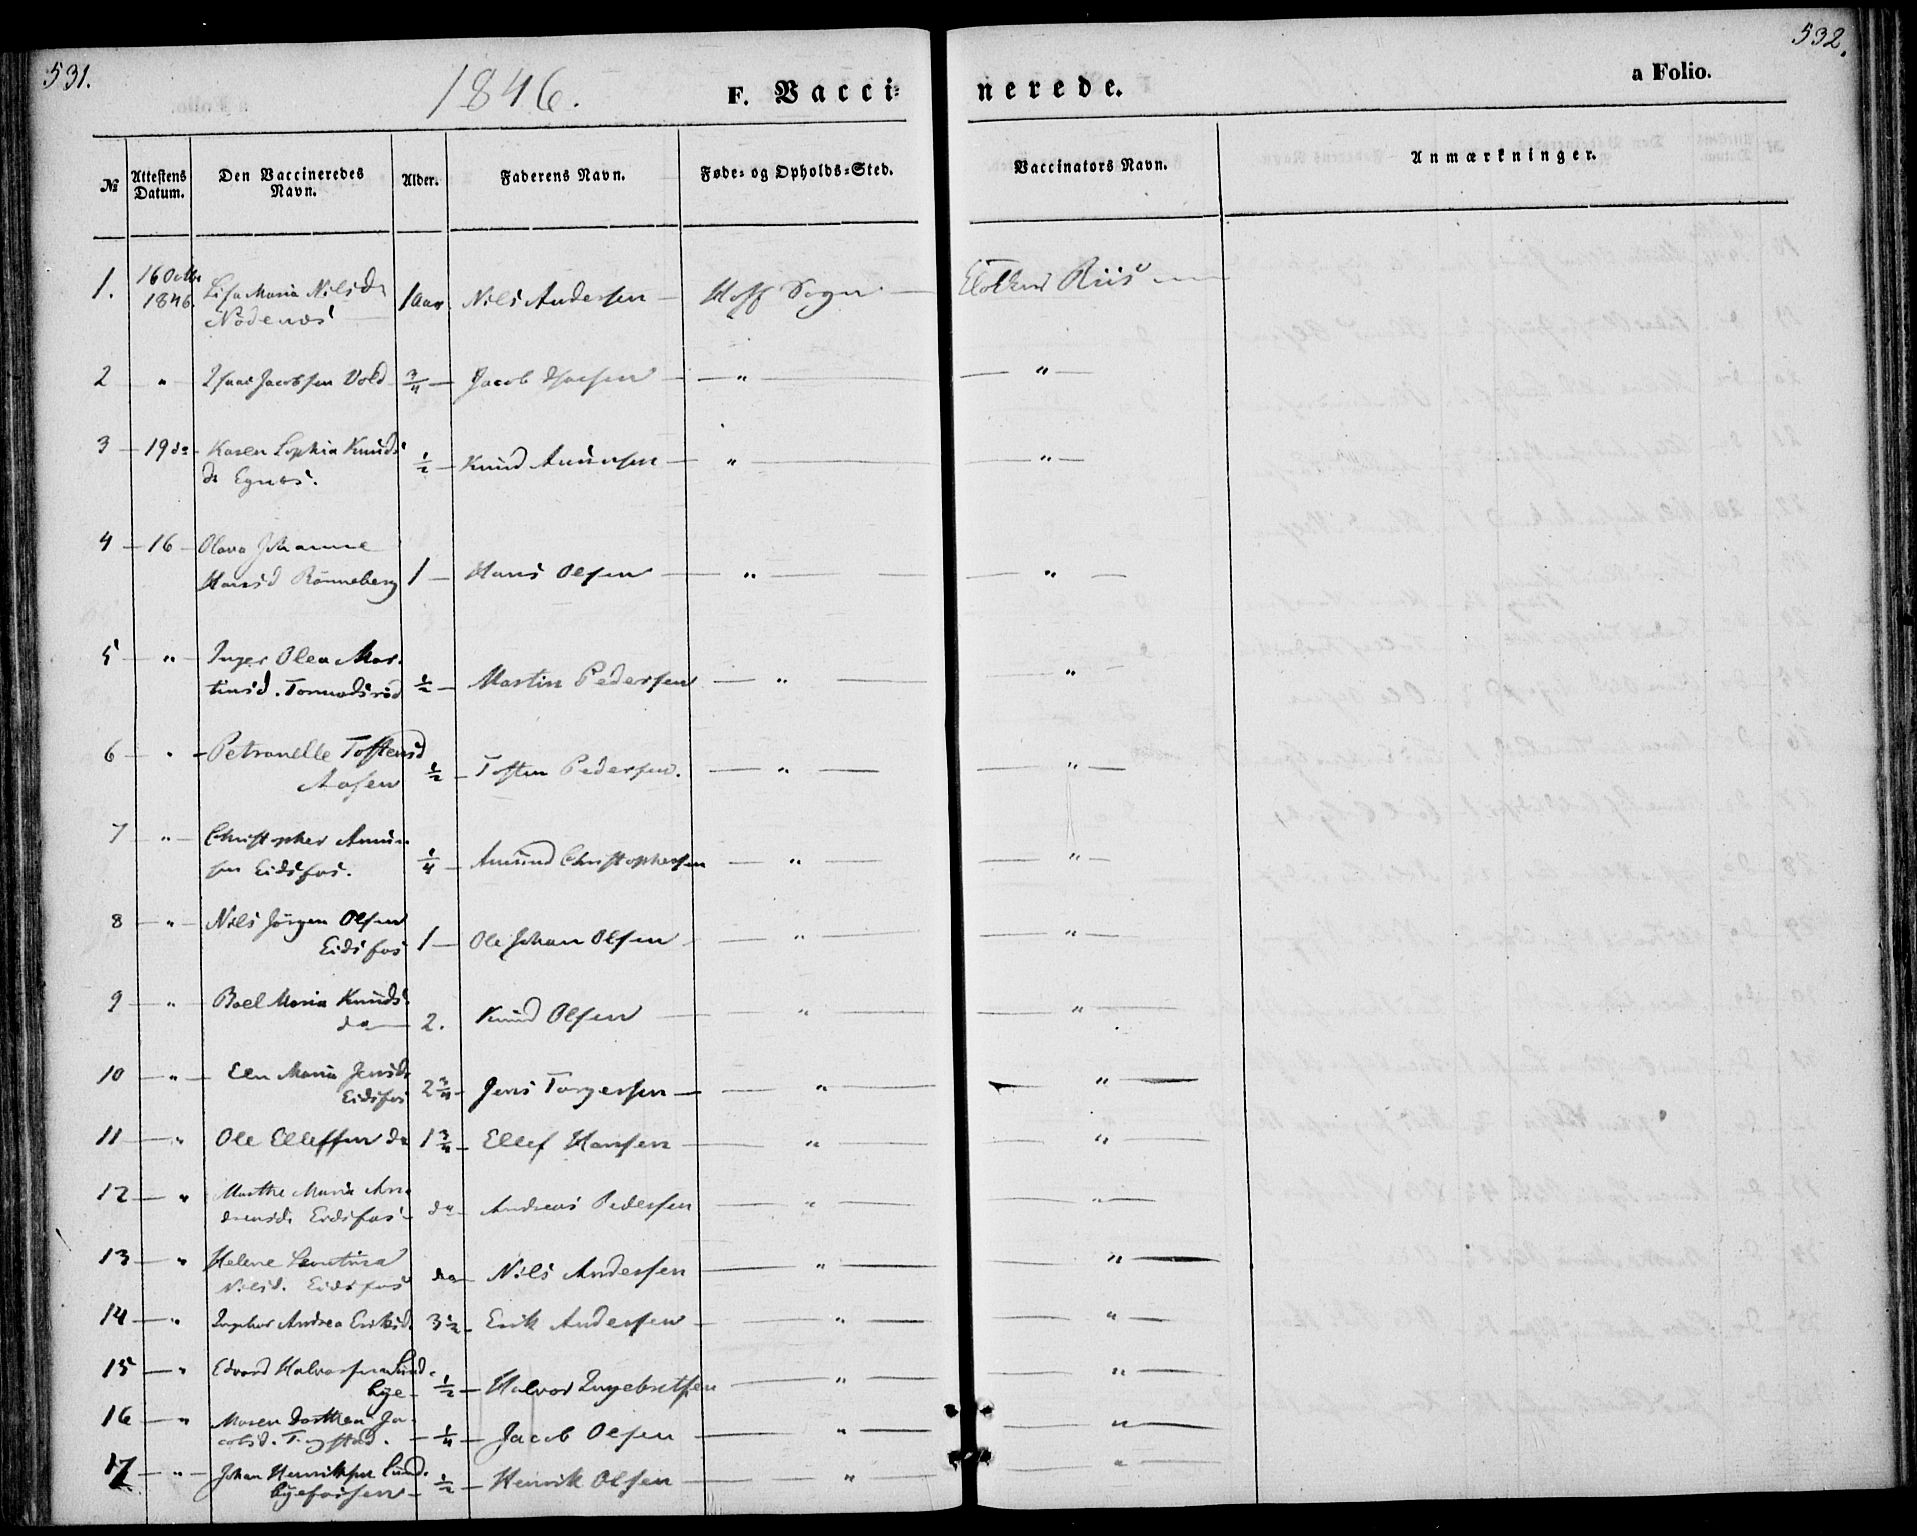 531.
532.
1846.
F. Vacci-
nerede.
a Folio.
№
Attestens Datum.
Den Vaccineredes Navn.
Alder.
Faderens Navn.
Føde- og Opholds-Sted.
Vaccinators Navn.
Anmærkninger.
1. 16 Octbr 1846. Maria Nilsd. Nödenæs 1 Aar Nils Andersen Hoff Sogn Riis
2 " Isaac Jacobsen Vold 3/4 Jacob Isacsen " "
3 19 do Karen Sophia Knuds
dr Egnæs. 1/2 Knud Amunsen " "
4 16 Olava Johanne
Hansd Rönneberg 1 Hans Olsen " "
5 " Inger Olea Mar-
tinsd. Tormodsröd 1/2 Martin Pedersen " "
6 " Petronelle Tostensd
Aasen 1/2 Tosten Pedersen. " "
7 " Christopher Amun-
sen Eidsfos. 1/4 Amund Christophersen " "
8 " Nils Jörgen Olsen
Eidsfos 1 Ole Johan Olsen " "
9 " Boel Maria Knuds-
do 2. Knud Olsen " "
10 " Elen Maria Jensdr
Eidsfos 2 3/4 Jens Torgersen " "
11 " Ole Ellefsen do 1 3/4 Ellef Hansen " "
12 " Marthe Maria An-
dreasdr Eidsfos do Andreas Pedersen " "
13 " Helene Leontina
Nilsd. Eidsfos do Nils Andersen " "
14 " Ingebor Andrea Eriksd. 3 1/2 Erik Andersen " "
15 " Edvard Halvorsen Lund-
bye 1/2 Halvor Ingebretsen " "
16 " Maren Dorthea Ja-
cobsd. 1/4 Jacob Olsen " "
17 " Johan Henriksen Lund-
byefossen 1/2 Henrik Olsen " "